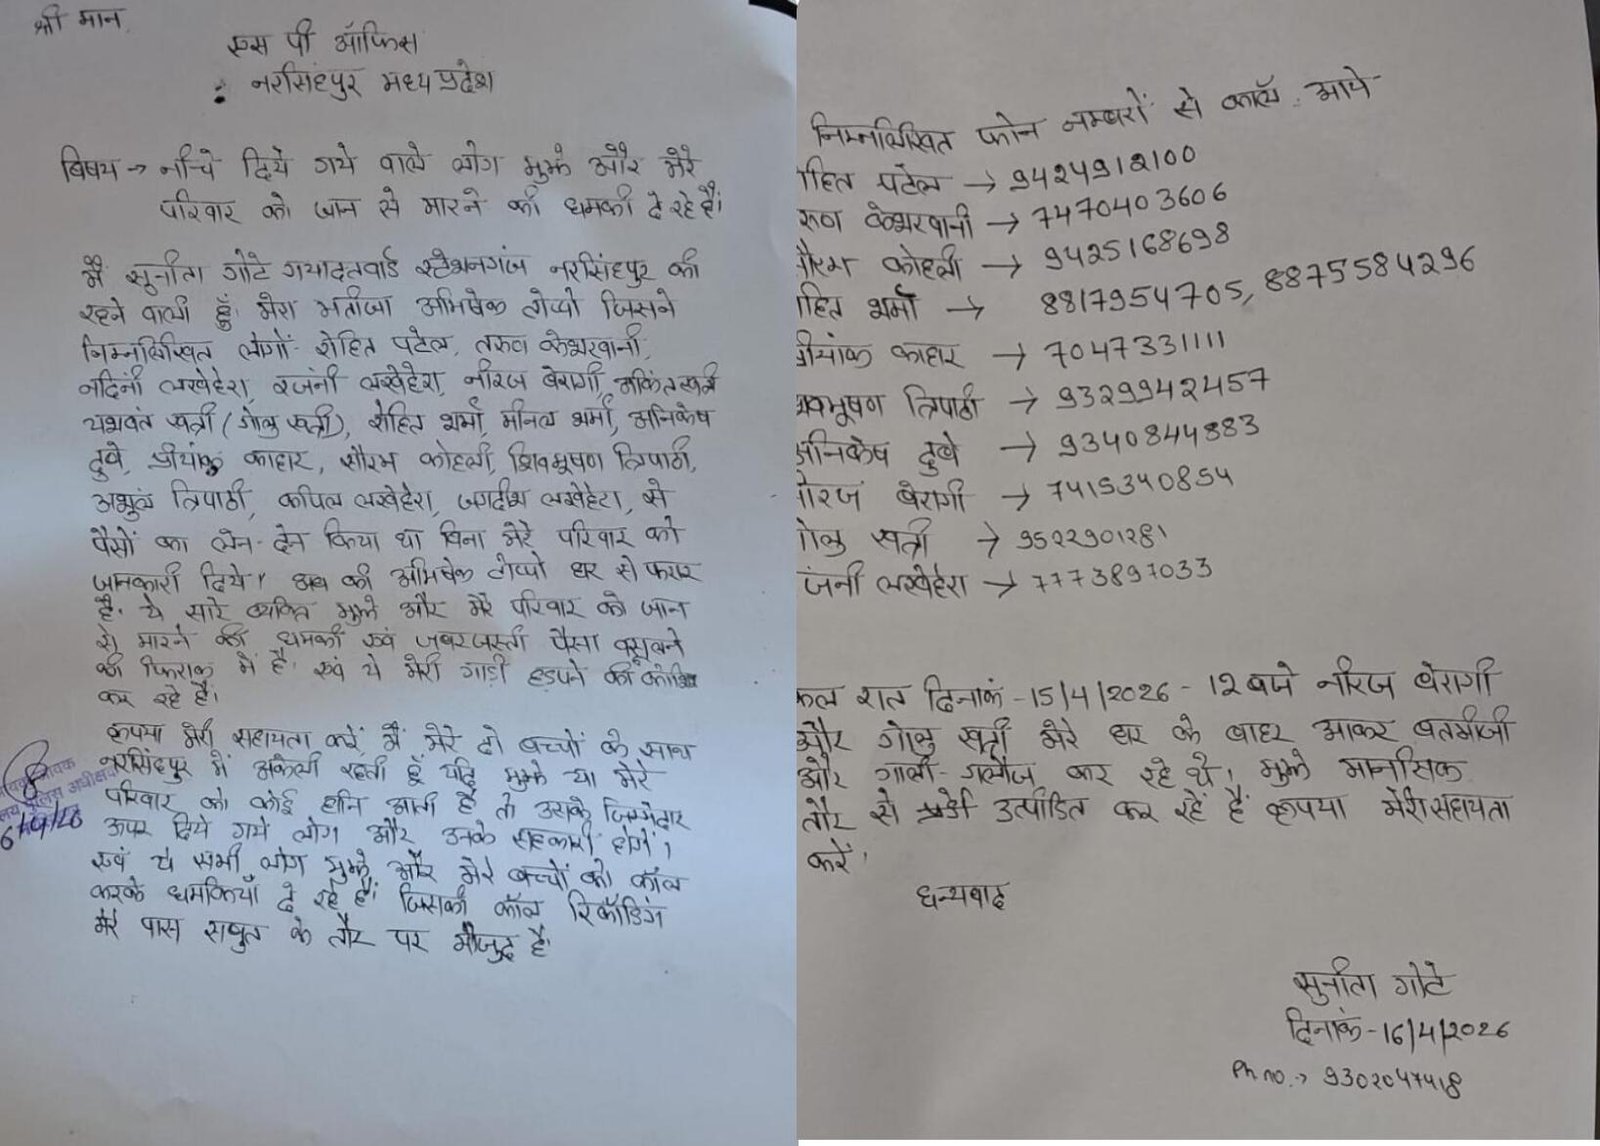 श्री मान,
एस पी ऑफिस
नरसिंहपुर मध्य प्रदेश
बिषय → नीचे दिये गये वाले लोग मुझे और मेरे
परिवार को जान से मारने की धमकी दे रहे हैं।
मैं सुनीता गोटे गयादतवार्ड स्टेशनगंज नरसिंहपुर की
रहने वाली हूँ। मेरा भतीजा अभिषेक टोप्पो जिसने
निम्नलिखित लोगों- रोहित पटेल, तरुण केशरवानी,
नंदिनी लखेहेरा, रजनी लखेहेरा, नीरज बेरागी, अंकित खत्री
यशवंत खत्री (गोलु खत्री), रोहित शर्मा, मीनल शर्मा, अनिकेष
दुवे, प्रीयांक काहार, सौरभ कोहली, शिवभूषण त्रिपाठी,
अंशुल त्रिपाठी, कपिल लखेहेरा, जगदीश लखेहेरा, से
पैसों का लेन-देन किया था बिना मेरे परिवार को
जानकारी दिये। अब की अभिषेक टोप्पो घर से फरार
है। ये सारे व्यक्ति मुझे और मेरे परिवार को जान
से मारने की धमकी एवं जबरजस्ती पैसा वसूलने
की फिराक में है। एवं ये मेरी गाड़ी हड़पने की कोशिश
कर रहे हैं।
कृपया मेरी सहायता करें मैं मेरे दो बच्चों के साथ
नरसिंहपुर में अकेली रहती हूँ यदि मुझे या मेरे
परिवार को कोई हानि आती है तो उसके जिम्मेदार
ऊपर दिये गये लोग और उनके सहकारी होंगे।
एवं ये सभी लोग मुझे और मेरे बच्चों को कॉल
करके धमकियाँ दे रहे हैं। जिसकी कॉल रिकॉडिंग
मेरे पास सबुत के तौर पर मौजुद है।
पुलिस अधीक्षक
6/4/26
निम्नलिखित फोन नम्बरों से कॉल आये
हित पटेल → 9424912100
रूण केशरवानी → 7470403606
ौरभ कोहली → 9425168698
हित शर्मा → 8817954705, 8875584296
प्रीयांक काहार → 7047331111
शिवभूषण त्रिपाठी → 9329942457
अनिकेष दुवे → 9340844383
ीरज बेरागी → 7415340854
गोलु खत्री → 9522901281
जनी लखेहेरा → 7773897033
कल रात दिनाकं -15/4/2026 - 12 बजे नीरज बेरागी
और गोलु खत्री मेरे घर के बाहर आकर बतमीजी
और गाली-गलौज कर रहे थे। मुझे मानसिक
तौर से उत्पीडित कर रहें हैं कृपया मेरी सहायता
करें।
धन्यवाद
सुनीता गोटे
दिनाकं -16/4/2026
Ph no. → 9302047418